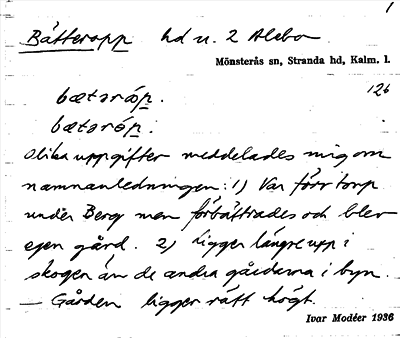 1
Bätteropp hd u. 2 Alebo
Mönsterås sn, Stranda hd, Kalm. l.
126
bætərǿp.
bætərǿp.
Olika uppgifter meddelades mig om
namnanledningen: 1) Var förr torp
under Berg men förbättrades och blev
egen gård. 2) Ligger längre upp i
skogen än de andra gårdarna i byn.
— Gården ligger rätt högt.
Ivar Modéer 1936